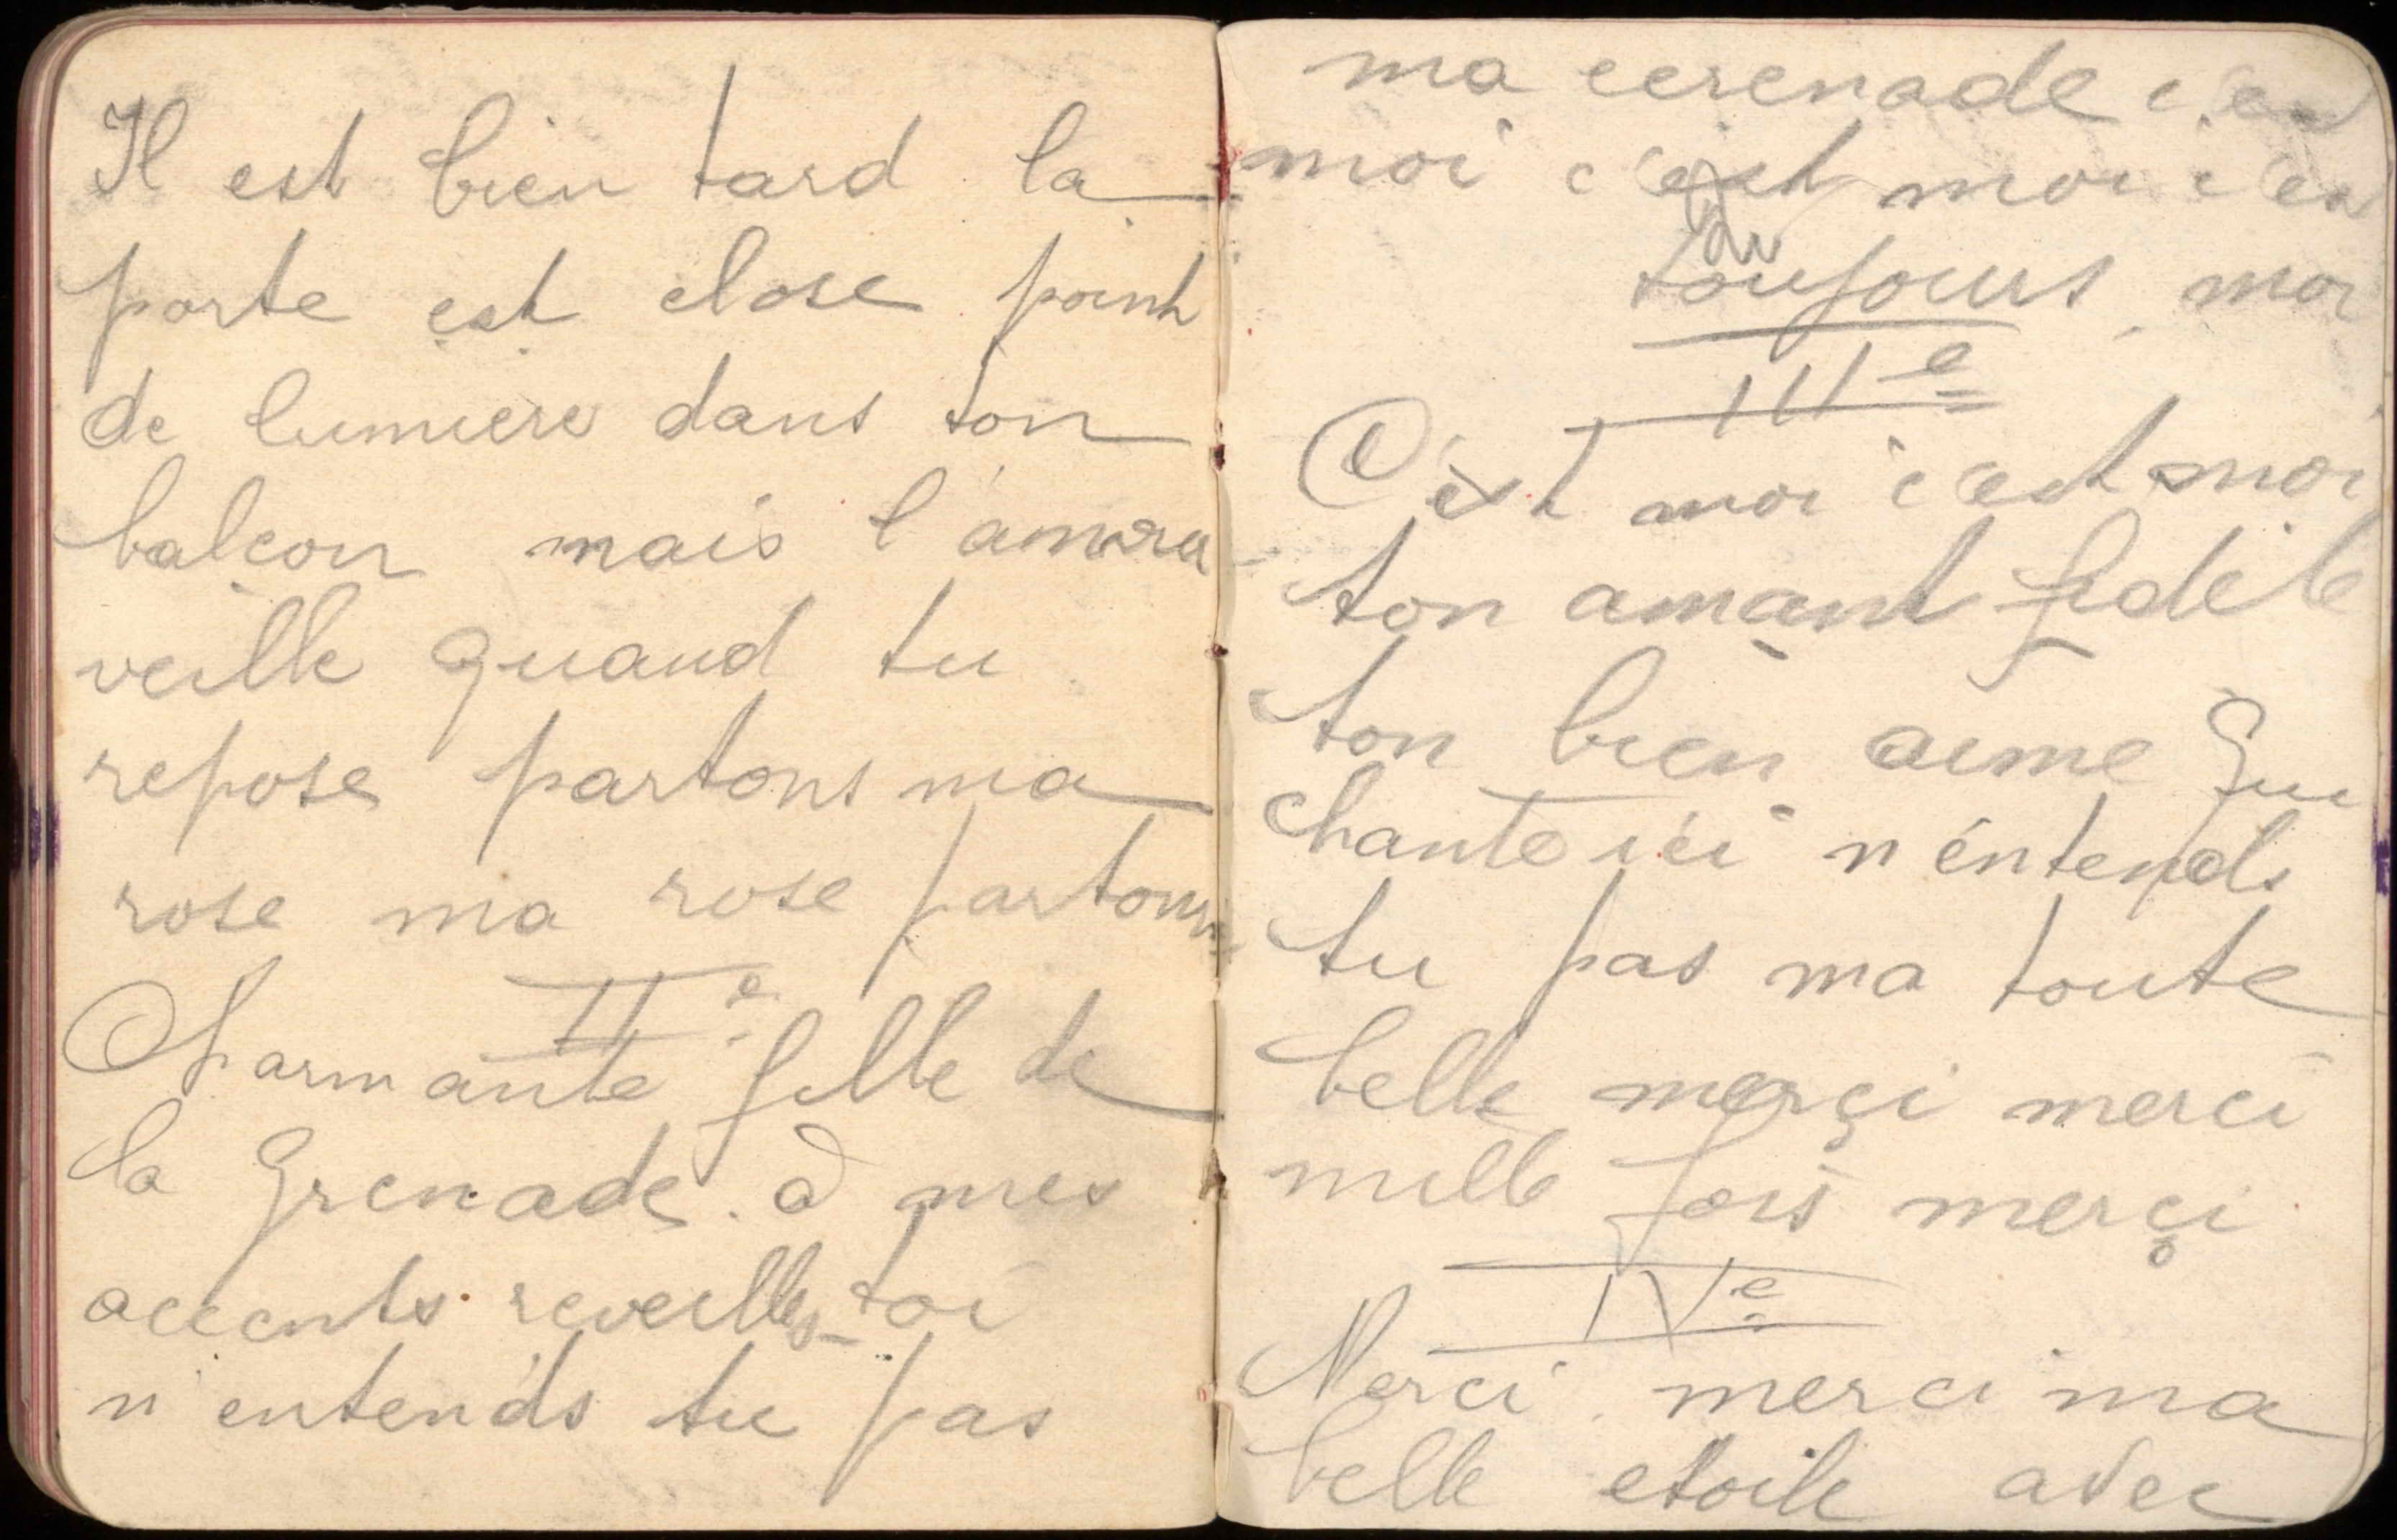 Il est bien tard la
porte est close point
de lumiere dans ton
balcon mais l'amour
veille quand tu
repose partons ma
rose ma rose partons
II e
Charmante fille de
la Grenade à mes
accents reveilles-toi
n'entends tu pas
ma cerenade c'es
moi c'est moi c'es
toujours moi
III e
C'est moi c'est moi
ton amant fidele
ton bien aime Qui
chante ici n'entends
tu pas ma toute
belle merçi merci
mille fois merçi
IV e
Merci merci ma
belle etoile avec